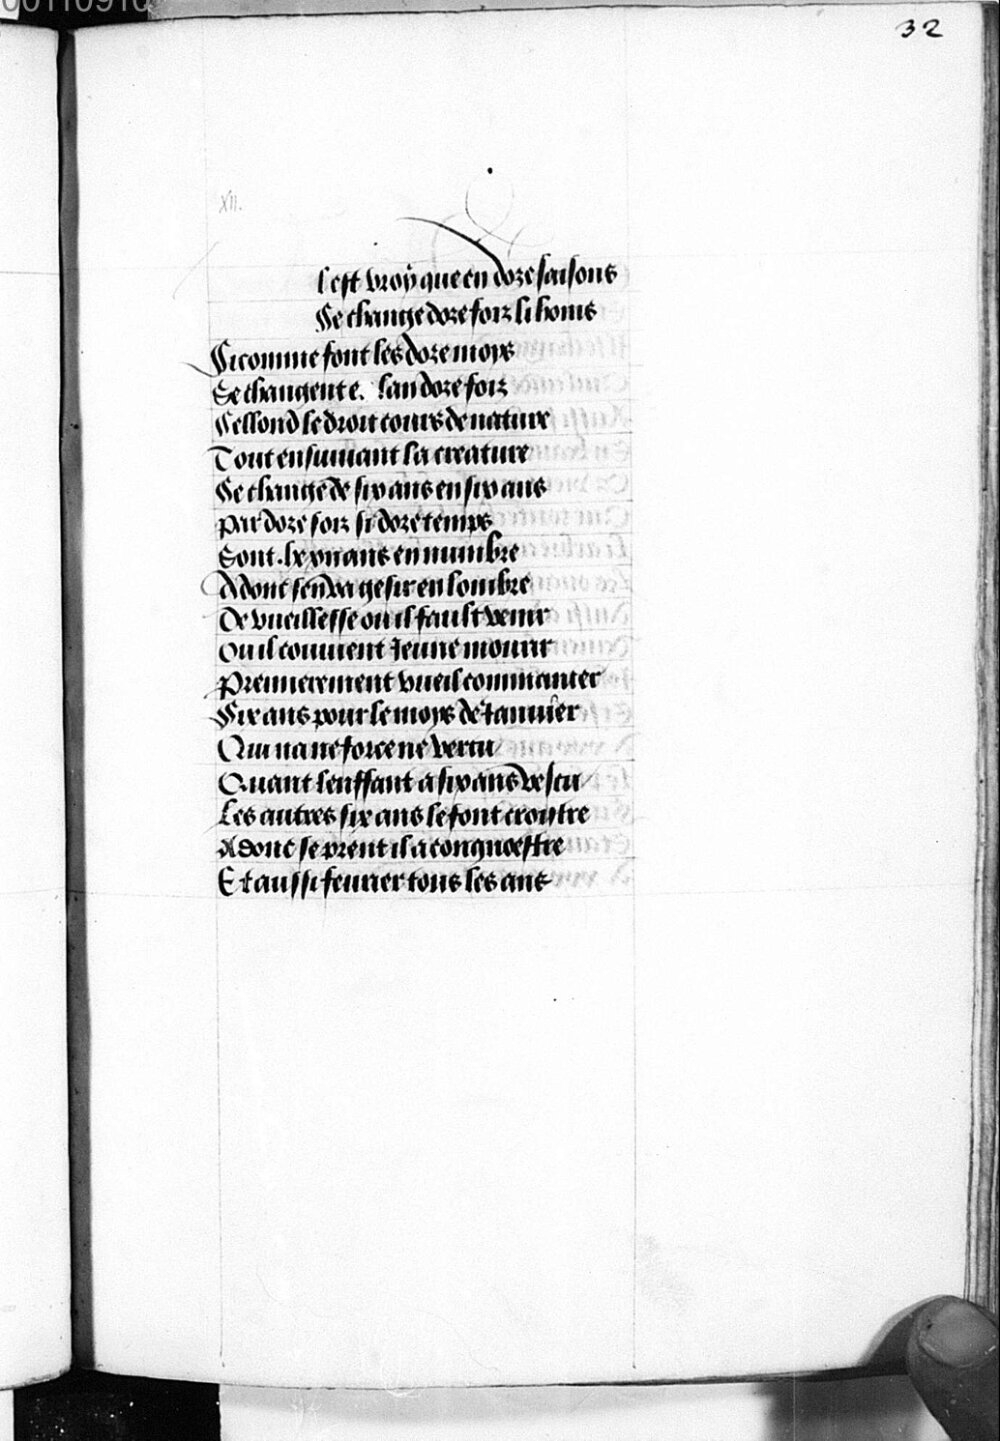 00110910
32
XII.
l est vray que en doze saisons
Se change doze foiz li homs
Si comme font les doze moys
Se changent e. lan doze foiz
Sellond le droit cours de nature
Tout ensuiuant la creature
Se change de six ans en six ans
Par doze foiz si doze temps
Sont .lxxii ans en numbre
Adont sen va gesir en lombre
De vueillesse ou il fault venir
Ou il conuient Jeune mourir
Premierement vueil commancier
Six ans pour le moys de Januier
Qui na ne force ne vertu
Quant lenffant a six ans vescu
Les autres six ans le font croistre
Adonc se prent il a congnoestre
Et aussi feurier tous les ans